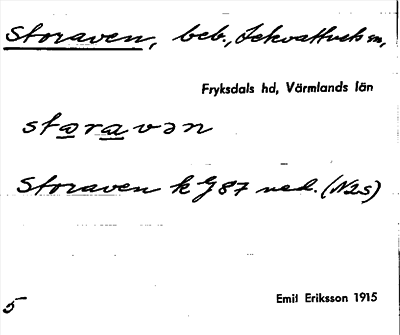 Storaven, beb., Lekvattnets sn,
Fryksdals hd, Värmlands län
staravən
Storaven k G 87 ned. (N2s)
5
Emil Eriksson 1915